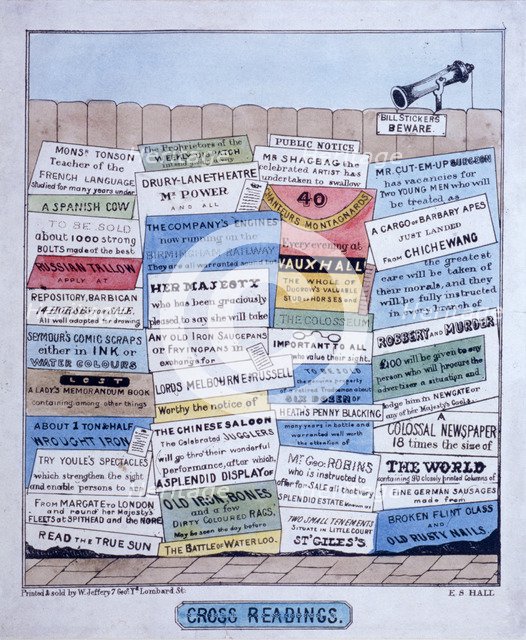 BILL STICKERS
BEWARE.
MONSR TONSON
Teacher of the
FRENCH LANGUAGE
Studied for many years under
A SPANISH COW
TO BE SOLD
about 1000 strong
BOLTS made of the best
RUSSIAN TALLOW
APPLY AT
REPOSITORY, BARBICAN
14 HORSES for SALE.
All well adapted for drawing
SEYMOUR'S COMIC SCRAPS
either in INK or
WATER COLOURS
LOST
A LADY'S MEMORANDUM BOOK
containing among other things
ABOUT 1 TON & HALF
WROUGHT IRON
TRY YOULE'S SPECTACLES
which strengthen the sight
and enable persons to
FROM MARGATE TO LONDON
and round her Majesty's
FLEETS AT SPITHEAD and the NORE
READ THE TRUE SUN
The Proprietors of the
WEEKLY DISPATCH
intend
DRURY-LANE-THEATRE
MR POWER
AND ALL
THE COMPANY'S ENGINES
now running on the
BIRMINGHAM RAILWAY
They are all warranted
HER MAJESTY
who has been graciously
pleased to say she will take
ANY OLD IRON SAUCEPANS
or FRYINGPANS in
exchange for
LORDS MELBOURNE & RUSSELL
Worthy the notice of
THE CHINESE SALOON
The Celebrated JUGGLERS
will go thro' their wonderful
performance, after which,
A SPLENDID DISPLAY OF
OLD IRON, BONES
and a few
DIRTY COLOURED RAGS.
May be seen the day before
THE BATTLE OF WATERLOO.
PUBLIC NOTICE
MR SHAGBAG the
celebrated ARTIST has
undertaken to swallow
40
CHANTEURS MONTAGNARDS
Every evening at
VAUXHALL
THE WHOLE OF
DUCROW'S VALUABLE
STUD of HORSES and
THE COLOSSEUM
IMPORTANT TO ALL
who value their sight.
TO BE SOLD
SIX DOZEN OF
HEATH'S PENNY BLACKING
many years in bottle and
warranted well worth
the attention of
MR GEO: ROBINS
who is instructed to
offer for SALE all the very
SPLENDID ESTATE
TWO SMALL TENEMENTS
Situate in LITTLE COURT
ST GILES'S
MR CUT-EM-UP SURGEON
has vacancies for
TWO YOUNG MEN who will
be treated as
A CARGO of BARBARY APES
JUST LANDED
FROM CHICHEWANG
the greatest
care will be taken of
their morals, and they
will be fully instructed
in the Mysteries of
ROBBERY AND MURDER
£100 will be given to any
person who will procure the
advertiser a situation and
lodge him in NEWGATE or
any of her Majesty's Gaols.
A
COLOSSAL NEWSPAPER
18 times the size of
THE WORLD
containing 90 closely printed Columns of
FINE GERMAN SAUSAGES
made from
BROKEN FLINT GLASS
AND
OLD RUSTY NAILS.
Printed & sold by W. Jeffery 7 Geo. Yd Lombard St:
E S HALL
CROSS READINGS.